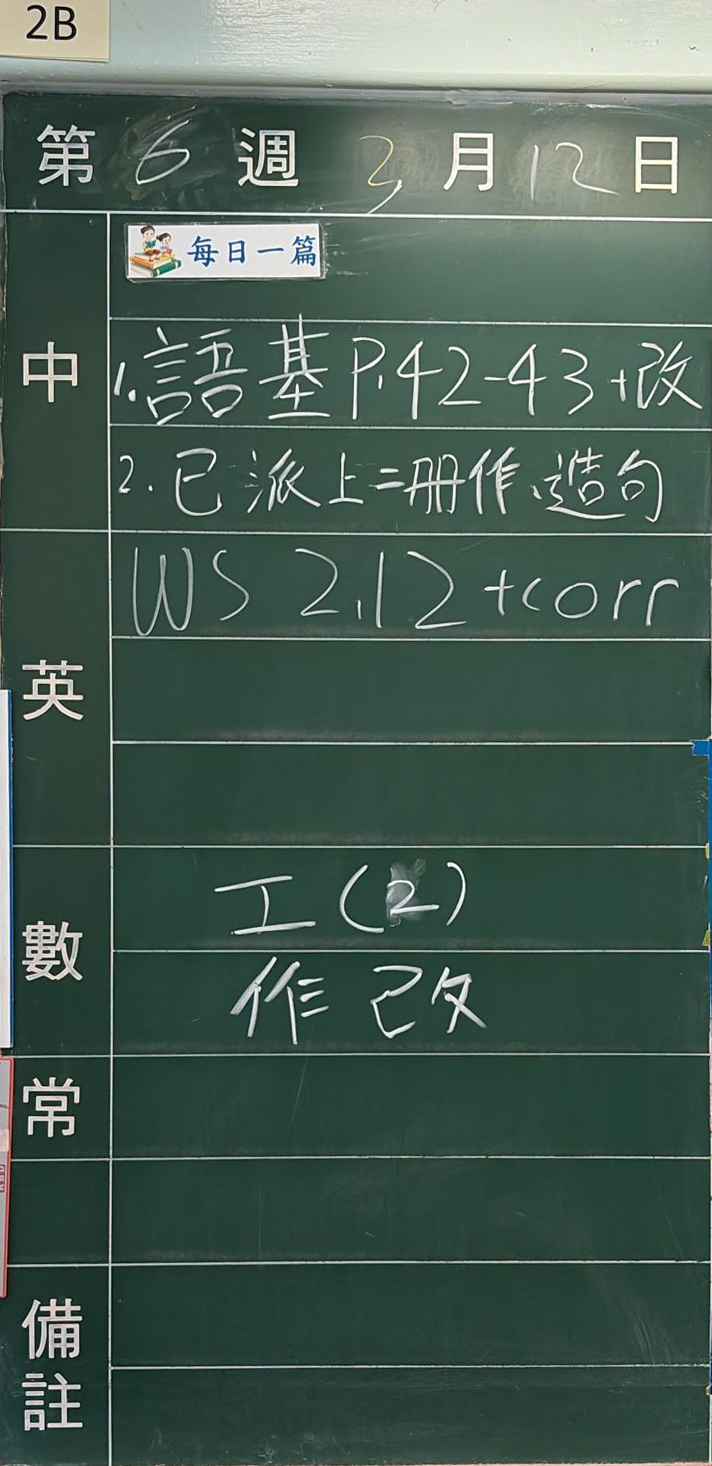 2B
第 6 週 3 月 12 日
每日一篇
中
1. 語基 P.42-43 +改
2. 已派上二冊作、造句
英
WS 2.12 +corr
數
工(2)
作改
常
備註